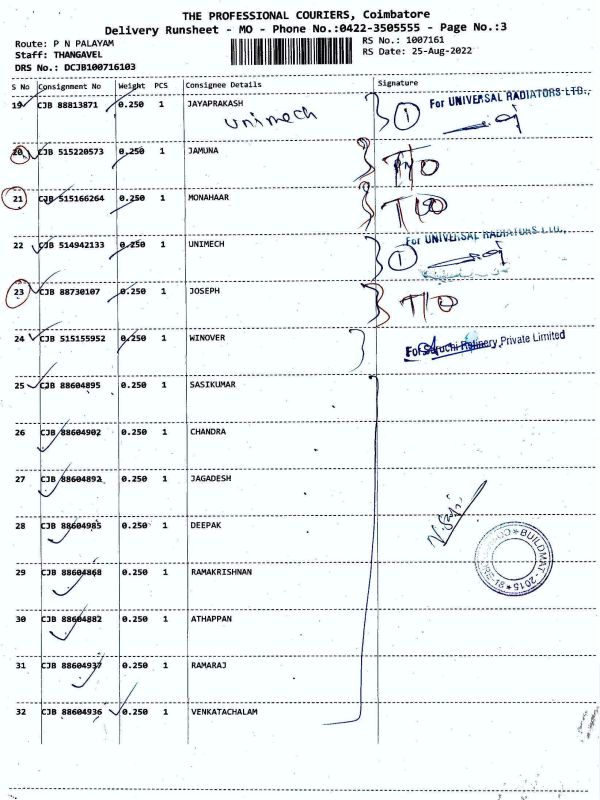 THE PROFESSIONAL COURIERS, Coimbatore
Delivery Runsheet - MO - Phone No.:0422-3505555 - Page No.:3
Route: P N PALAYAM
RS No.: 1007161
Staff: THANGAVEL
RS Date: 25-Aug-2022
DRS No.: DCJB100716103
S No Consignment No Weight PCS Consignee Details Signature
19 CJB 88813871 0.250 1 JAYAPRAKASH 1 For UNIVERSAL RADIATORS LTD.,
Unimech
20 CJB 515220573 0.250 1 JAMUNA T/O
21 CJB 515166264 0.250 1 MONAHAAR T/O
For UNIVERSAL RADIATORS LTD.,
22 CJB 514942133 0.250 1 UNIMECH 1
23 CJB 88730107 0.250 1 JOSEPH T/O
24 CJB 515155952 0.250 1 WINOVER For Suruchi Refinery Private Limited
25 CJB 88604895 0.250 1 SASIKUMAR
26 CJB 88604902 0.250 1 CHANDRA
27 CJB 88604892 0.250 1 JAGADESH
28 CJB 88604985 0.250 1 DEEPAK
BUILDMAT - 2015
29 CJB 88604868 0.250 1 RAMAKRISHNAN
30 CJB 88604882 0.250 1 ATHAPPAN
31 CJB 88604937 0.250 1 RAMARAJ
32 CJB 88604936 0.250 1 VENKATACHALAM